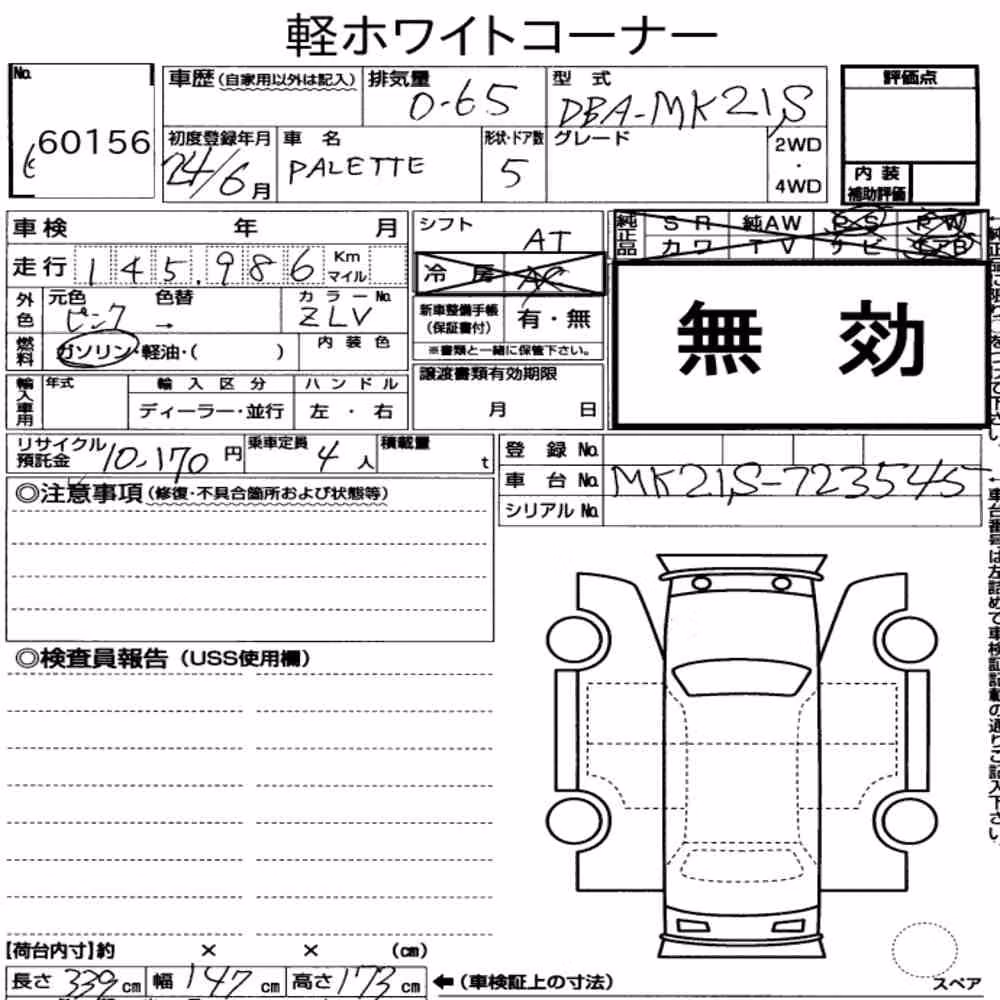 軽ホワイトコーナー
No. 60156
車歴(自家用以外は記入) 排気量 0-65 型式 DBA-MK21S 評価点
初度登録年月 24/6月 車名 PALETTE 形状・ドア数 5 グレード 2WD・4WD 内装補助評価
車検 年 月 シフト AT 純正品 SR 純AW PS PW
カワ TV ナビ エアB
走行 145,986 Km マイル 冷房 AC
外色 元色 ピンク 色替 → カラーNo. ZLV 新車整備手帳(保証書付) 有・無
燃料 ガソリン・軽油・( ) 内装色 ※書類と一緒に保管下さい。
無効
輸入車用 年式 輸入区分 ハンドル 譲渡書類有効期限
ディーラー・並行 左・右 月 日
リサイクル預託金 10,170円 乗車定員 4人 積載量 t 登録No.
車台No. MK21S-723545
シリアルNo.
◎注意事項(修復・不具合箇所および状態等)
◎検査員報告(USS使用欄)
車台番号は左詰めで車検証記載の通りご記入下さい。
[荷台内寸]約 × × (cm)
長さ 339cm 幅 147cm 高さ 173cm ←(車検証上の寸法)
スペア